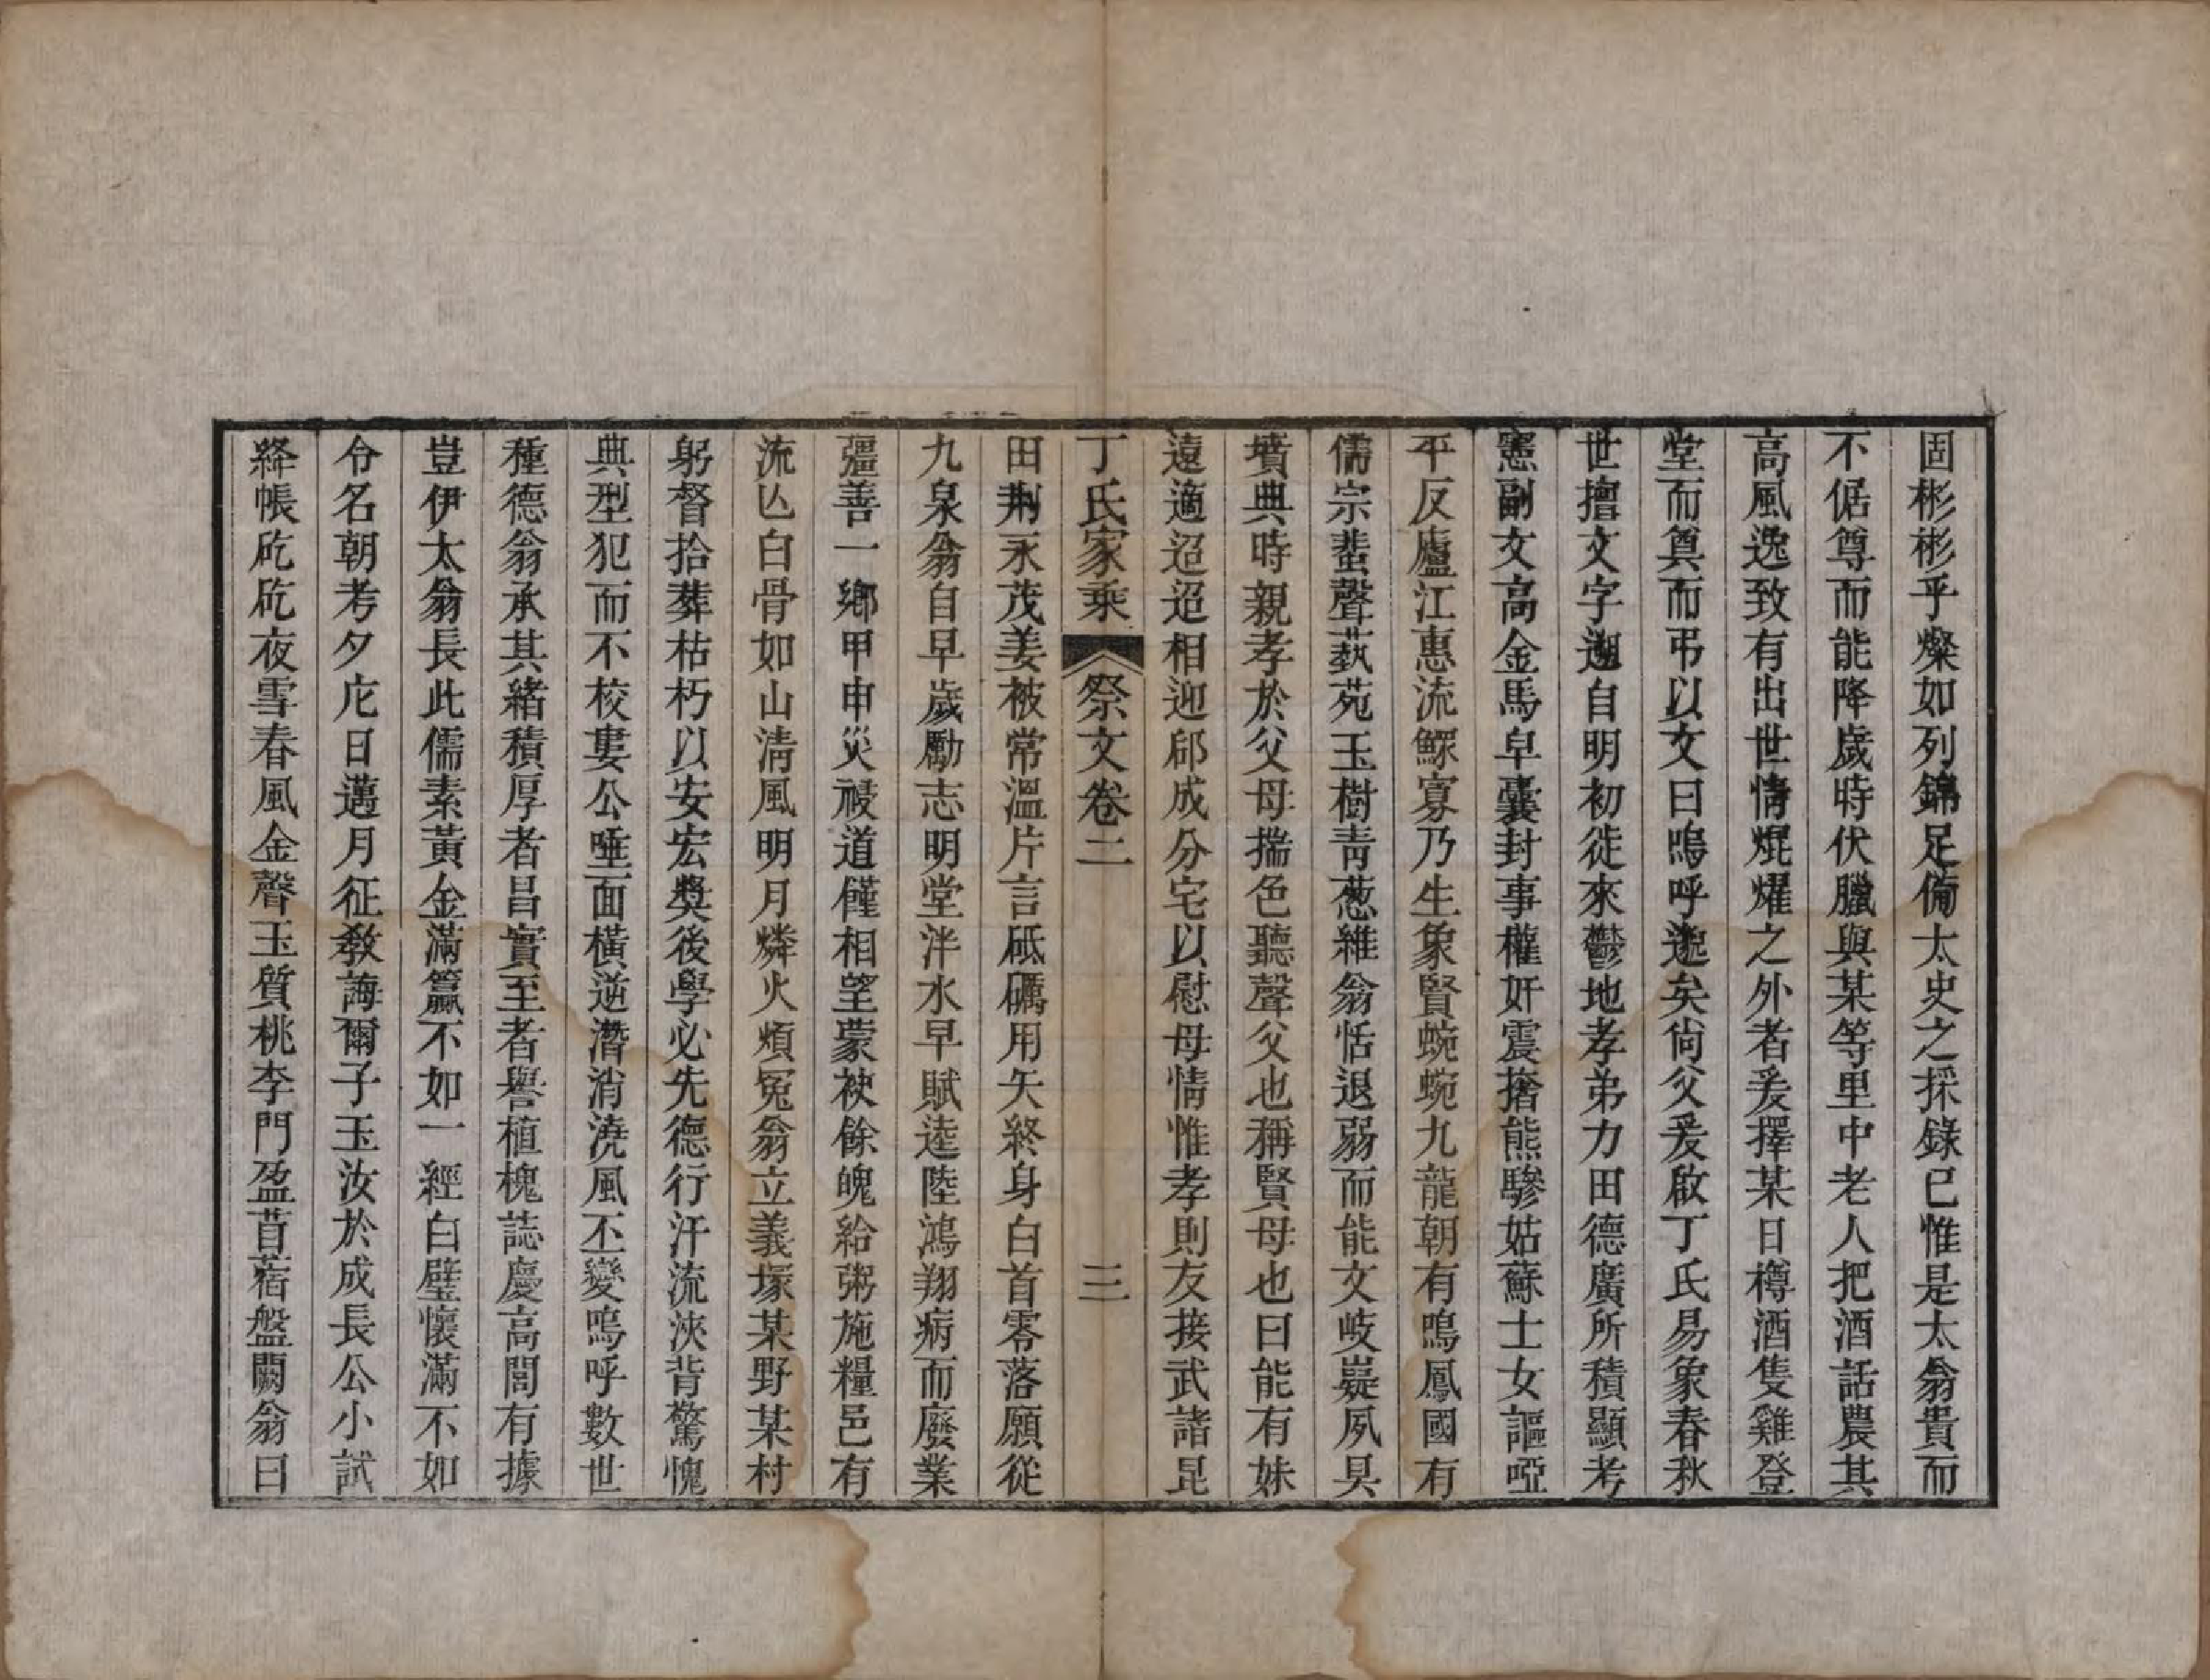 固彬彬乎燦如列錦足備太史之採錄已惟是太翁貴而
不倨尊而能降歲時伏臘與某等里中老人把酒話農其
高風逸致有出世情焜燿之外者爰擇某日樽酒隻雞登
堂而奠而弔以文曰嗚呼邈矣尙父爰啟丁氏易象春秋
世擅文字迦自明初徙來鬱地孝弟力田德廣所積顯考
憲副文高金馬皁囊封事權奸震撦熊驂姑蘇士女謳啞
平反廬江惠流鰥寡乃生象賢蜿蜿九龍朝有鳴鳳國有
儒宗蜚聲蓺苑玉樹靑葱維翁恬退弱而能文岐嶷夙具
墳典時親孝於父母揣色聽聲父也稱賢母也曰能有妹
遠適迢迢相迎郈成分宅以慰母情惟孝則友接武諸昆
丁氏家乘 祭文卷二 三
田荆永茂姜被常溫片言砥礪用矢終身白首零落願從
九泉翁自早歲勵志明堂泮水早賦逵陸鴻翔病而廢業
彊善一鄉甲申災祲道饉相望蒙袂餘魄給粥施糧邑有
流亾白骨如山淸風明月燐火煩冤翁立義塚某野某村
躬督拾葬枯朽以安宏獎後學必先德行汗流浹背驚愧
典型犯而不校婁公唾面橫逆潛消澆風丕變嗚呼數世
種德翁承其緒積厚者昌實至者譽植槐誌慶高閎有據
豈伊太翁長此儒素黃金滿籯不如一經白璧懷滿不如
令名朝考夕庀日邁月征敎誨爾子玉汝於成長公小試
絳帳矻矻夜雪春風金聲玉質桃李門盈苜蓿盤闌翁曰